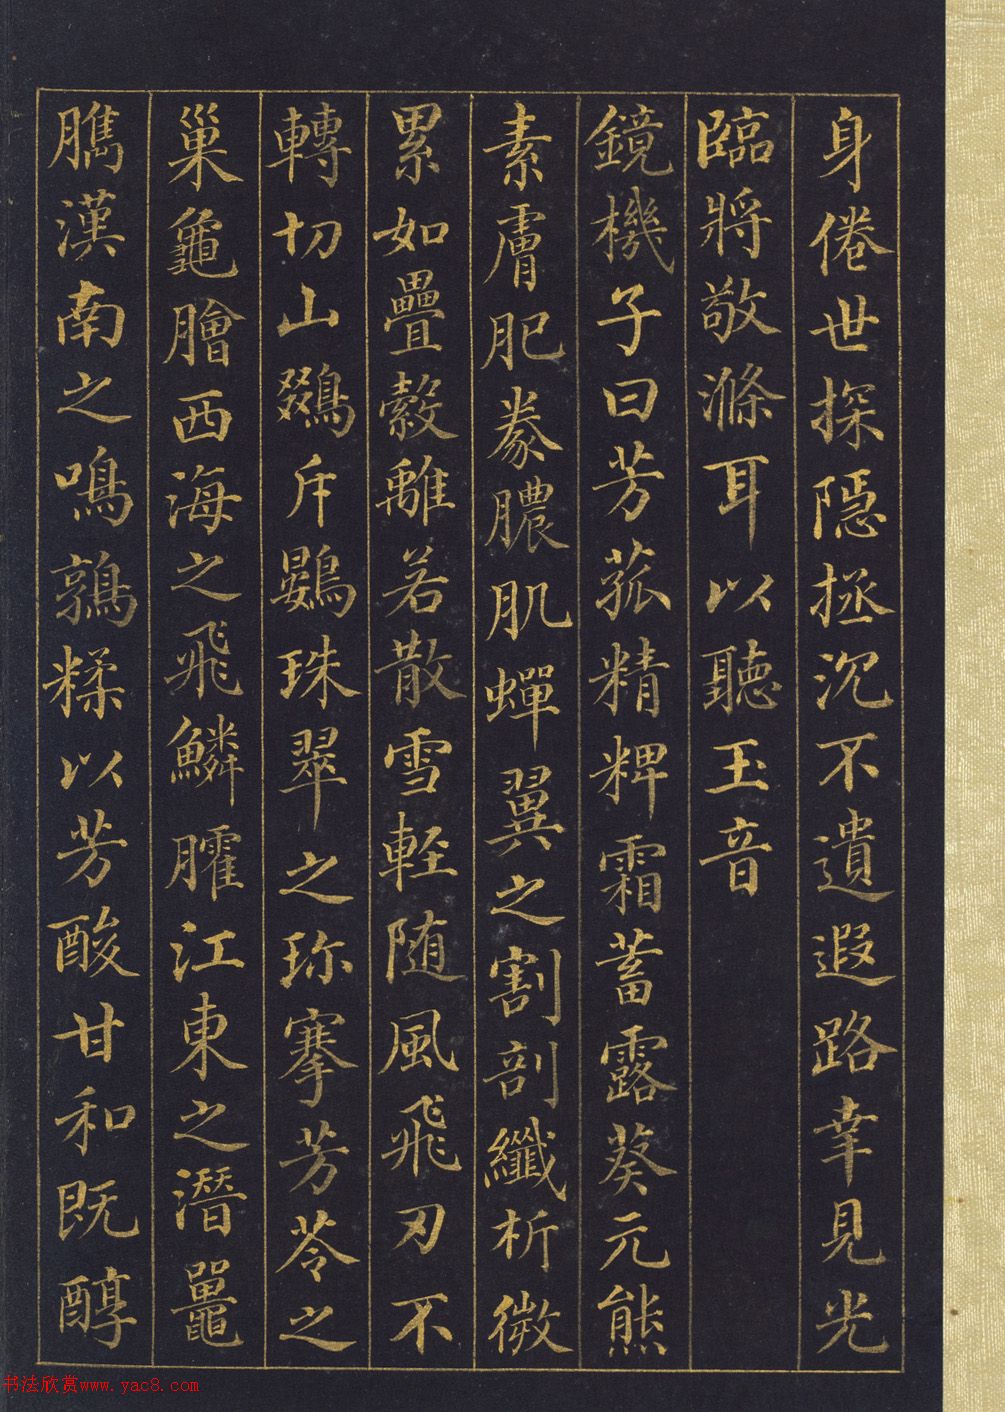 身倦世探隱拯沉不遺遐路幸見光
臨將敬滌耳以聽玉音
鏡機子曰芳菰精粺霜蓄露葵元熊
素膚肥豢膿肌蟬翼之割剖纖析微
累如疊縠離若散雪輕随風飛刃不
轉切山鵽斥鷃珠翠之珎搴芳苓之
巢龜膾西海之飛鱗臛江東之潛鼉
臇漢南之鳴鶉糅以芳酸甘和既醇
书法欣赏www.yac8.com